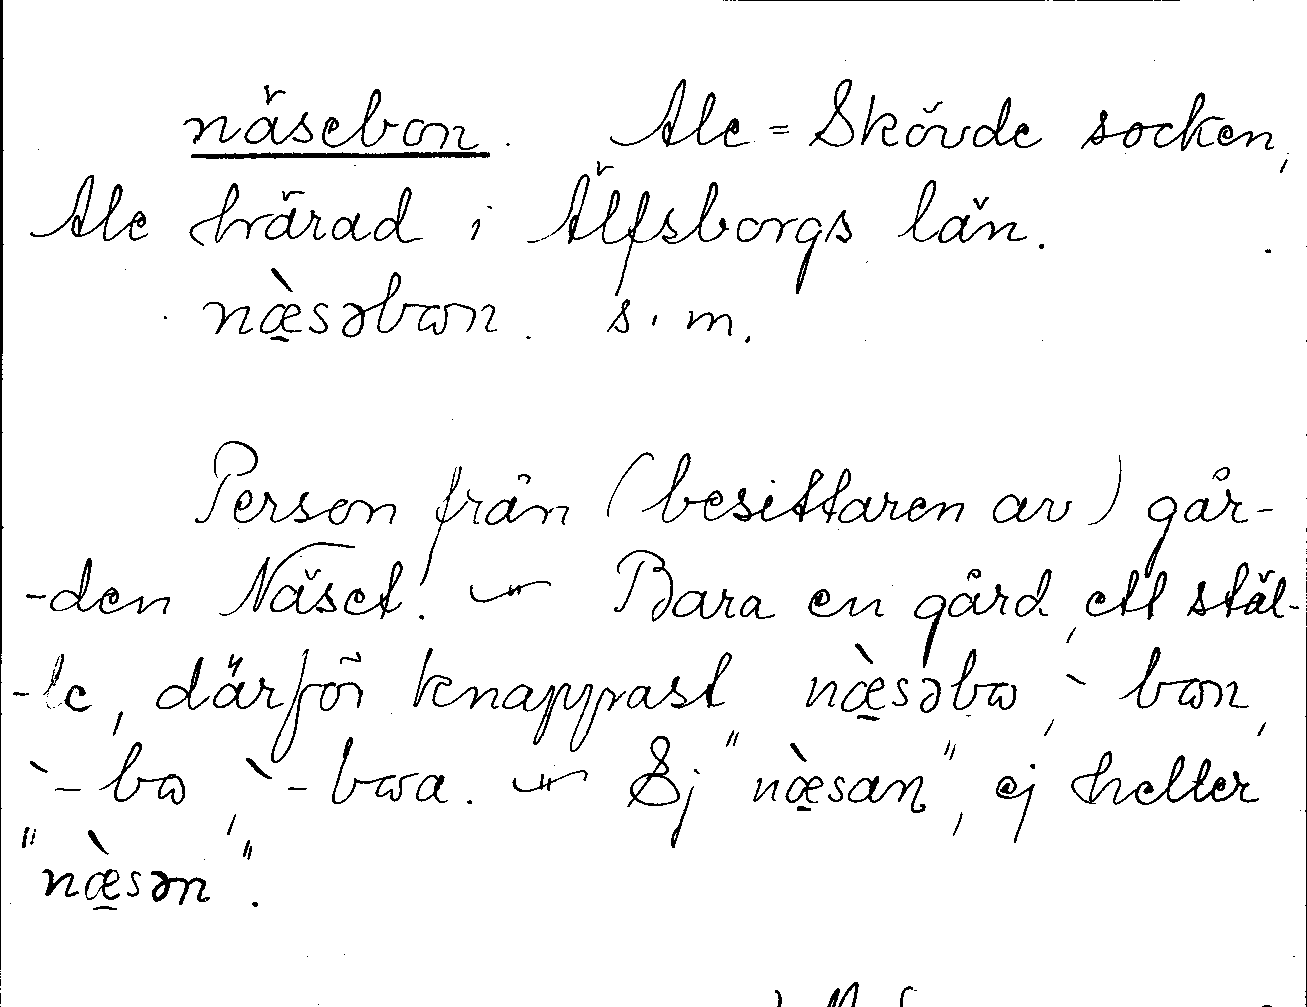 näsebon. Ale=Skövde socken,
Ale härad i Älfsborgs län.
næ̠̀səbɷn. s.m.
Person från (besittaren av) går-
-den Näset. — Bara en gård, ett stäl-
-le, därför knappast næ̠̀səbɷ, `- bɷn,
`-bɷ, `-bɷa. — Ej "næ̠̀san", ej heller
"næ̠̀sən".